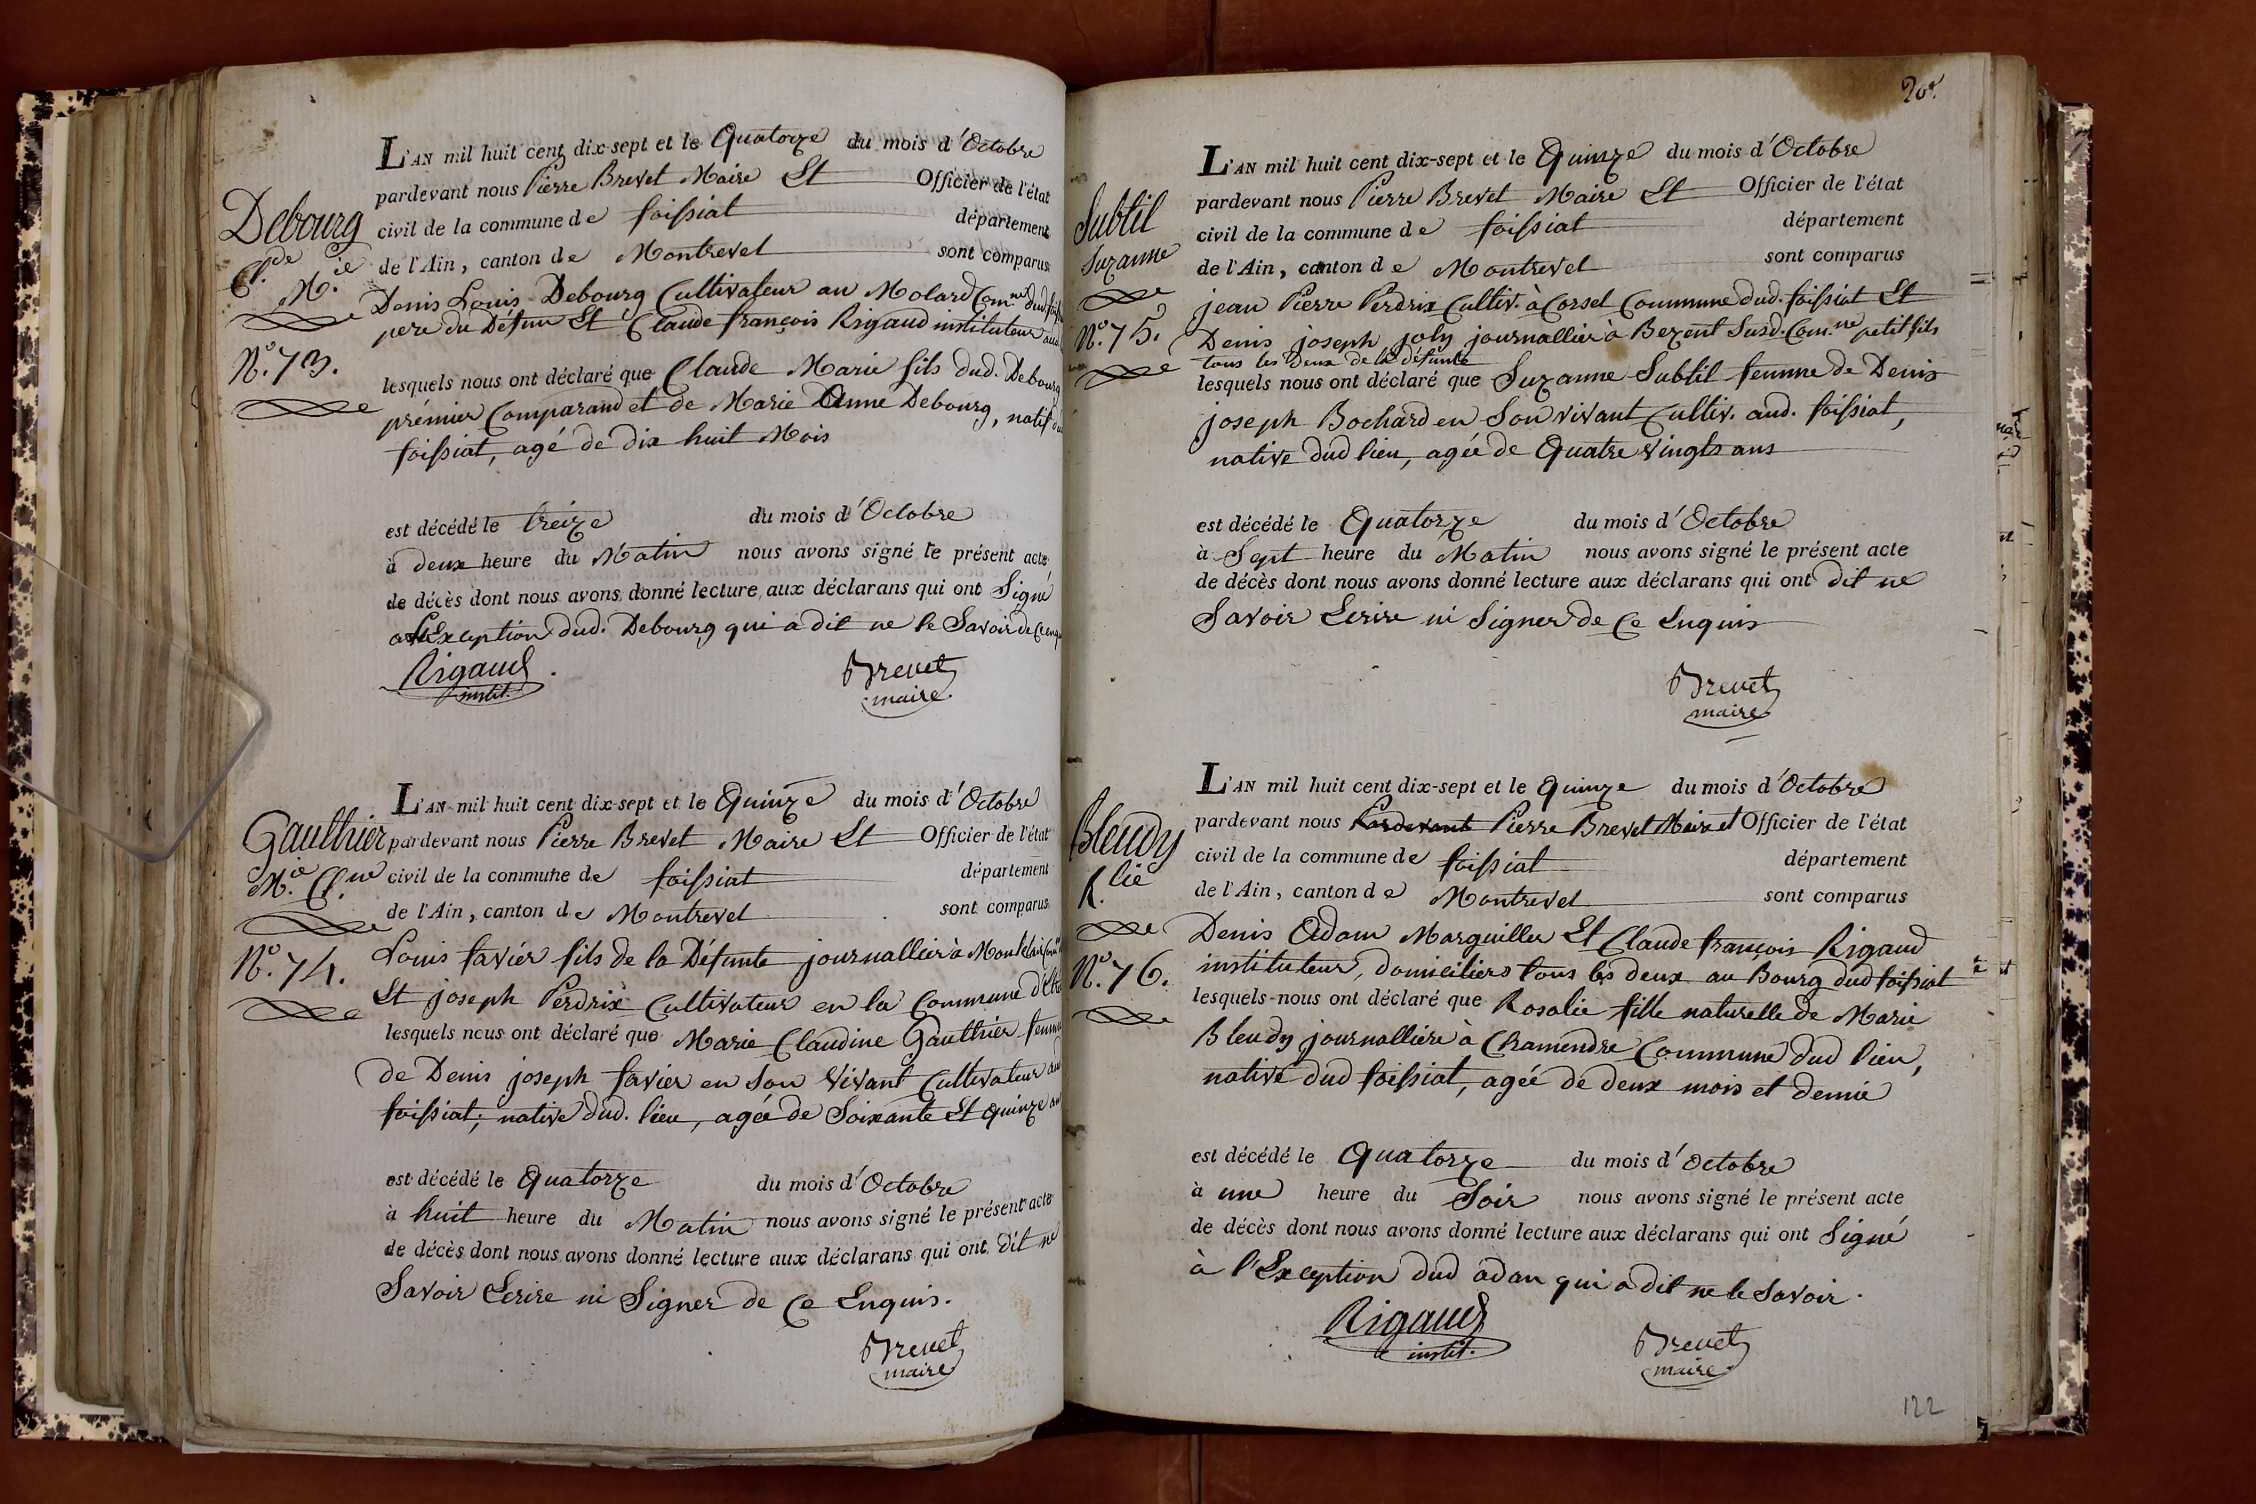 L'AN mil huit cent dix-sept et le Quatorze du mois d'Octobre
pardevant nous Pierre Brevet Maire Et Officier de l'état
civil de la commune de foissiat département
de l'Ain, canton de Montrevel sont comparus
Debourg
Cl.de M.ie
N.° 73.
Denis Louis Debourg Cultivateur au Molard Com.ne dud. foissiat
pere du Défun Et Claude françois Rigaud instituteur aud.
lesquels nous ont déclaré que Claude Marie fils dud. Debourg
prémier Comparand et de Marie Anne Debourg, natif dud
foissiat, agé de dix huit Mois
est décédé le treize du mois d'Octobre
à deux heure du Matin nous avons signé le présent acte
de décès dont nous avons donné lecture aux déclarans qui ont Signé
à l'Exception dud. Debourg qui a dit ne le Savoir de ce enquis
Rigaud
instit.
Brevet
maire.
L'AN mil huit cent dix-sept et le Quinze du mois d'Octobre
Gaulthier
M.ie Cl.ne
N.° 74.
pardevant nous Pierre Brevet Maire Et Officier de l'état
civil de la commune de foissiat département
de l'Ain, canton de Montrevel sont comparus
Louis favier fils de la Défunte journallier à
Et joseph Perdrix Cultivateur en la Commune
lesquels nous ont déclaré que Marie Claudine Gaulthier femme
de Denis joseph favier en Son Vivant Cultivateur aud
foissiat; native dud. lieu, agée de Soixante Et quinze ans
est décédé le Quatorze du mois d'Octobre
à huit heure du Matin nous avons signé le présent acte
de décès dont nous avons donné lecture aux déclarans qui ont dit ne
Savoir Ecrire ni Signer de Ce Enquis.
Brevet
maire
20e.
L'AN mil huit cent dix-sept et le Quinze du mois d'Octobre
pardevant nous Pierre Brevet Maire Et Officier de l'état
civil de la commune de foissiat département
de l'Ain, canton de Montrevel sont comparus
Subtil
Suzanne
N.° 75.
jean Pierre Perdrix Cultiv. à Corsel Commune dud. foissiat Et
Denis joseph joly journallier à Bezent Susd. Com.ne petit fils
tous les Deux de la défunte
lesquels nous ont déclaré que Suzanne Subtil femme de Denis
joseph Bochard en Son vivant Cultiv. aud. foissiat,
native dud lieu, agée de Quatre Vingts ans
est décédé le Quatorze du mois d'Octobre
à Sept heure du Matin nous avons signé le présent acte
de décès dont nous avons donné lecture aux déclarans qui ont dit ne
Savoir Ecrire ni Signer de Ce Enquis
Brevet
maire
L'AN mil huit cent dix-sept et le Quinze du mois d'Octobre
Bleudy
R.lie
N.° 76.
pardevant nous Pardevant Pierre Brevet Maire et Officier de l'état
civil de la commune de foissiat département
de l'Ain, canton de Montrevel sont comparus
Denis Adam Marguiller Et Claude françois Rigaud
instituteur, domiciliers tous les deux au Bourg dud foissiat
lesquels nous ont déclaré que Rosalie fille naturelle de Marie
Bleudy journallière à Chamendre Commune dud lieu,
native dud foissiat, agée de deux mois et demie
est décédé le Quatorze du mois d'Octobre
à une heure du Soir nous avons signé le présent acte
de décès dont nous avons donné lecture aux déclarans qui ont Signé
à l'Exception dud adan qui a dit ne le Savoir.
Rigaud
instit.
Brevet
maire
122